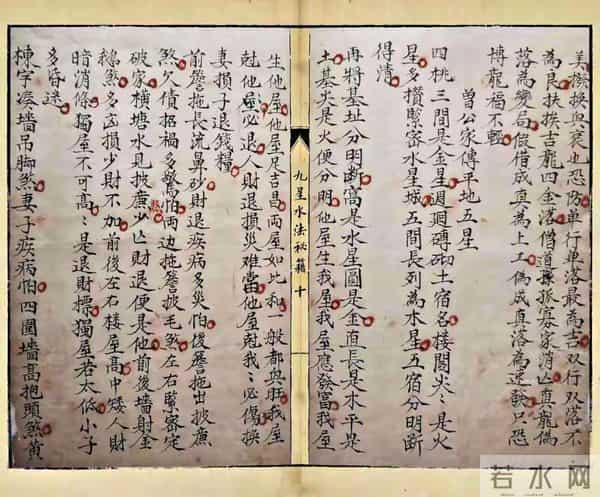 美機換與衰也恐防單行單落最為吉双行双落不
為良扶挨吉龍四金落僧道孫孤寡家消亡真龍偽
落為變局假借成真為上工偽成真落為逆訣只恐
博龍福不輕
曾公家傳平地五星
四桃三間是金星週廻磚砌土宿名楼閣尖々是火
星多攢緊密水星城五間長列為木星五宿分明断
得清
再將基址分明断窩是水星圓是金直長是木平是
土基尖是火便分明他屋生我屋我屋應發富我屋
生他屋他屋足吉昌两屋如比和一般都與旺我屋
尅他屋々必退人財退損災难當他屋尅我々必傷
妻損子退錢糧
前簷拖長流鼻砂財退疾病多災怕後簷拖出披廉
煞欠債招禍多驚怕两边拖簷披毛煞左右緊密定
破家橫塘水見披廉少亡財退便是他前後墻射金
鵝煞多凶損少財不加前後左右楼屋高中矮人財
暗消條獨屋不可高々是退財標獨屋若太低小子
多昏迷
棟字湾墻吊脚煞妻子疾病怕四圍墻高抱頭煞黄
九星水法秘籍 十
若水网